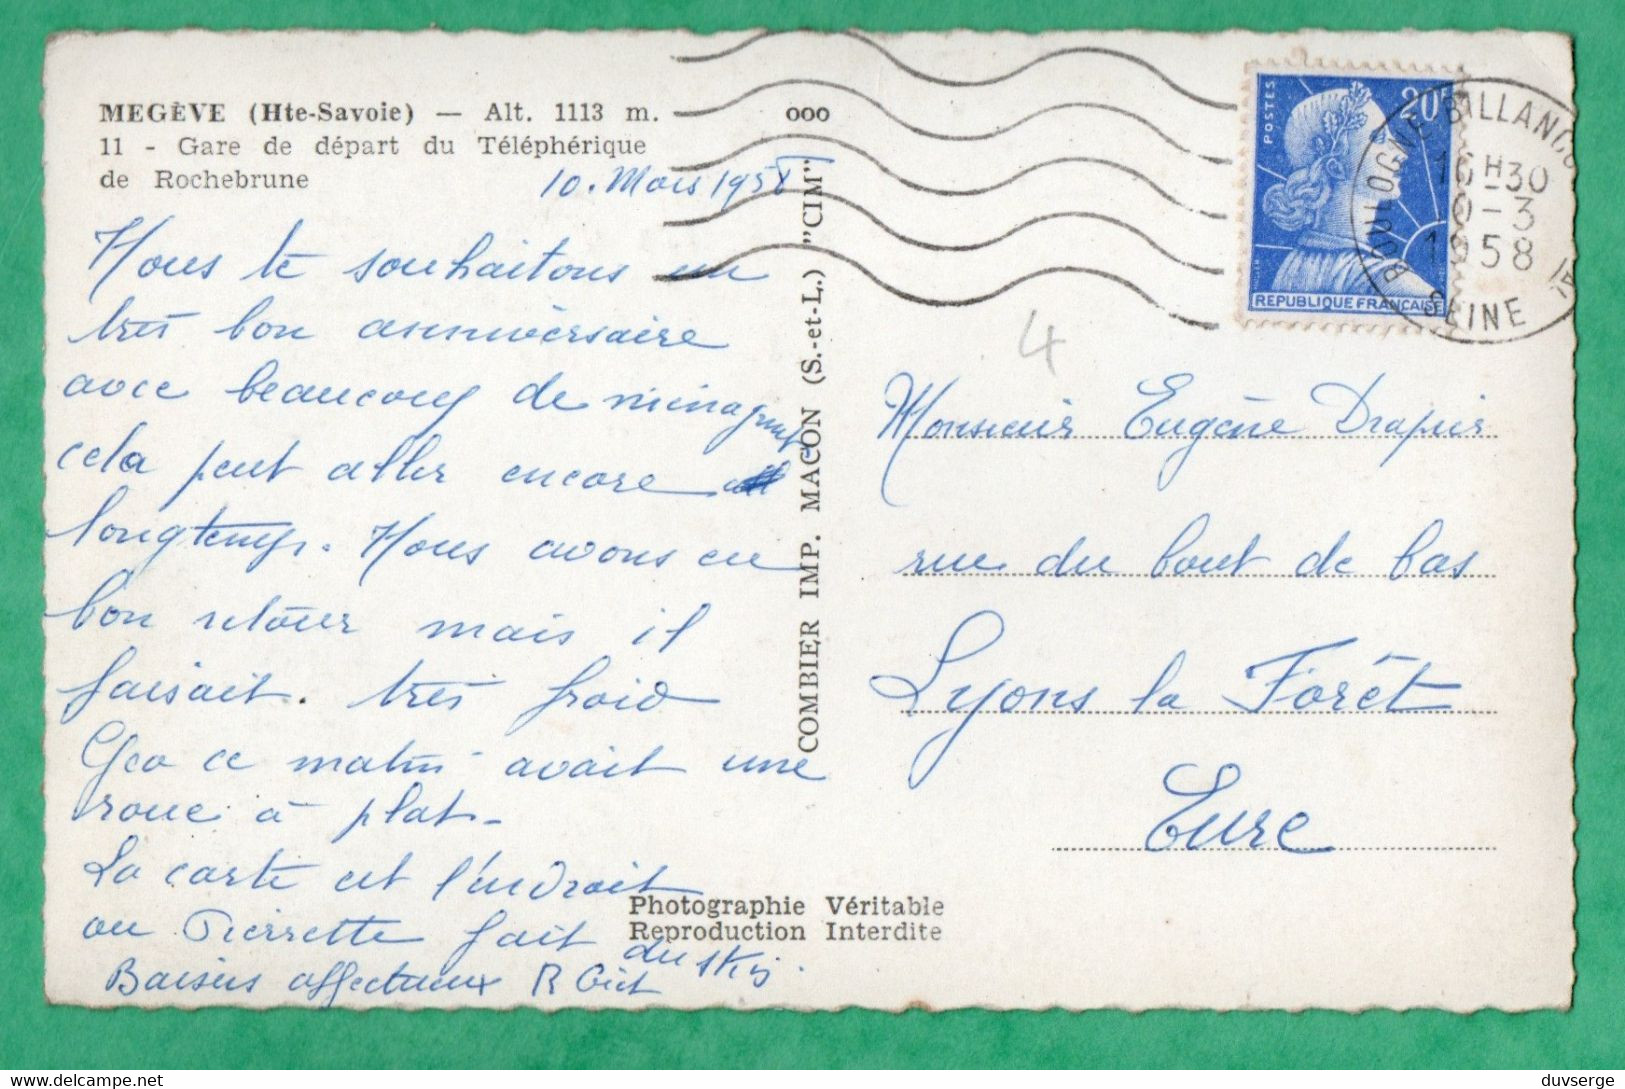 MEGÈVE (Hte-Savoie) — Alt. 1113 m.
11 - Gare de départ du Téléphérique
de Rochebrune
10. Mars 1958
Nous te souhaitons un
très bon anniversaire
avec beaucoup de ménagement
cela peut aller encore
longtemps. Nous avons eu
bon retour mais il
faisait. très froid
Geo ce matin avait une
roue à plat -
La carte est l'endroit
ou Pierrette fait
du ski.
Baisers affectueux R
ooo
COMBIER IMP. MACON (S.-et-L.) "CIM"
Photographie Véritable
Reproduction Interdite
POSTES
20F
REPUBLIQUE FRANÇAISE
BOULOGNE-BILLANCO
16H30
0-3
1958
SEINE
4
Monsieur Eugène Drapier
rue du bout de bas
Lyons la Forêt
Eure
duvserge
delcampe.net